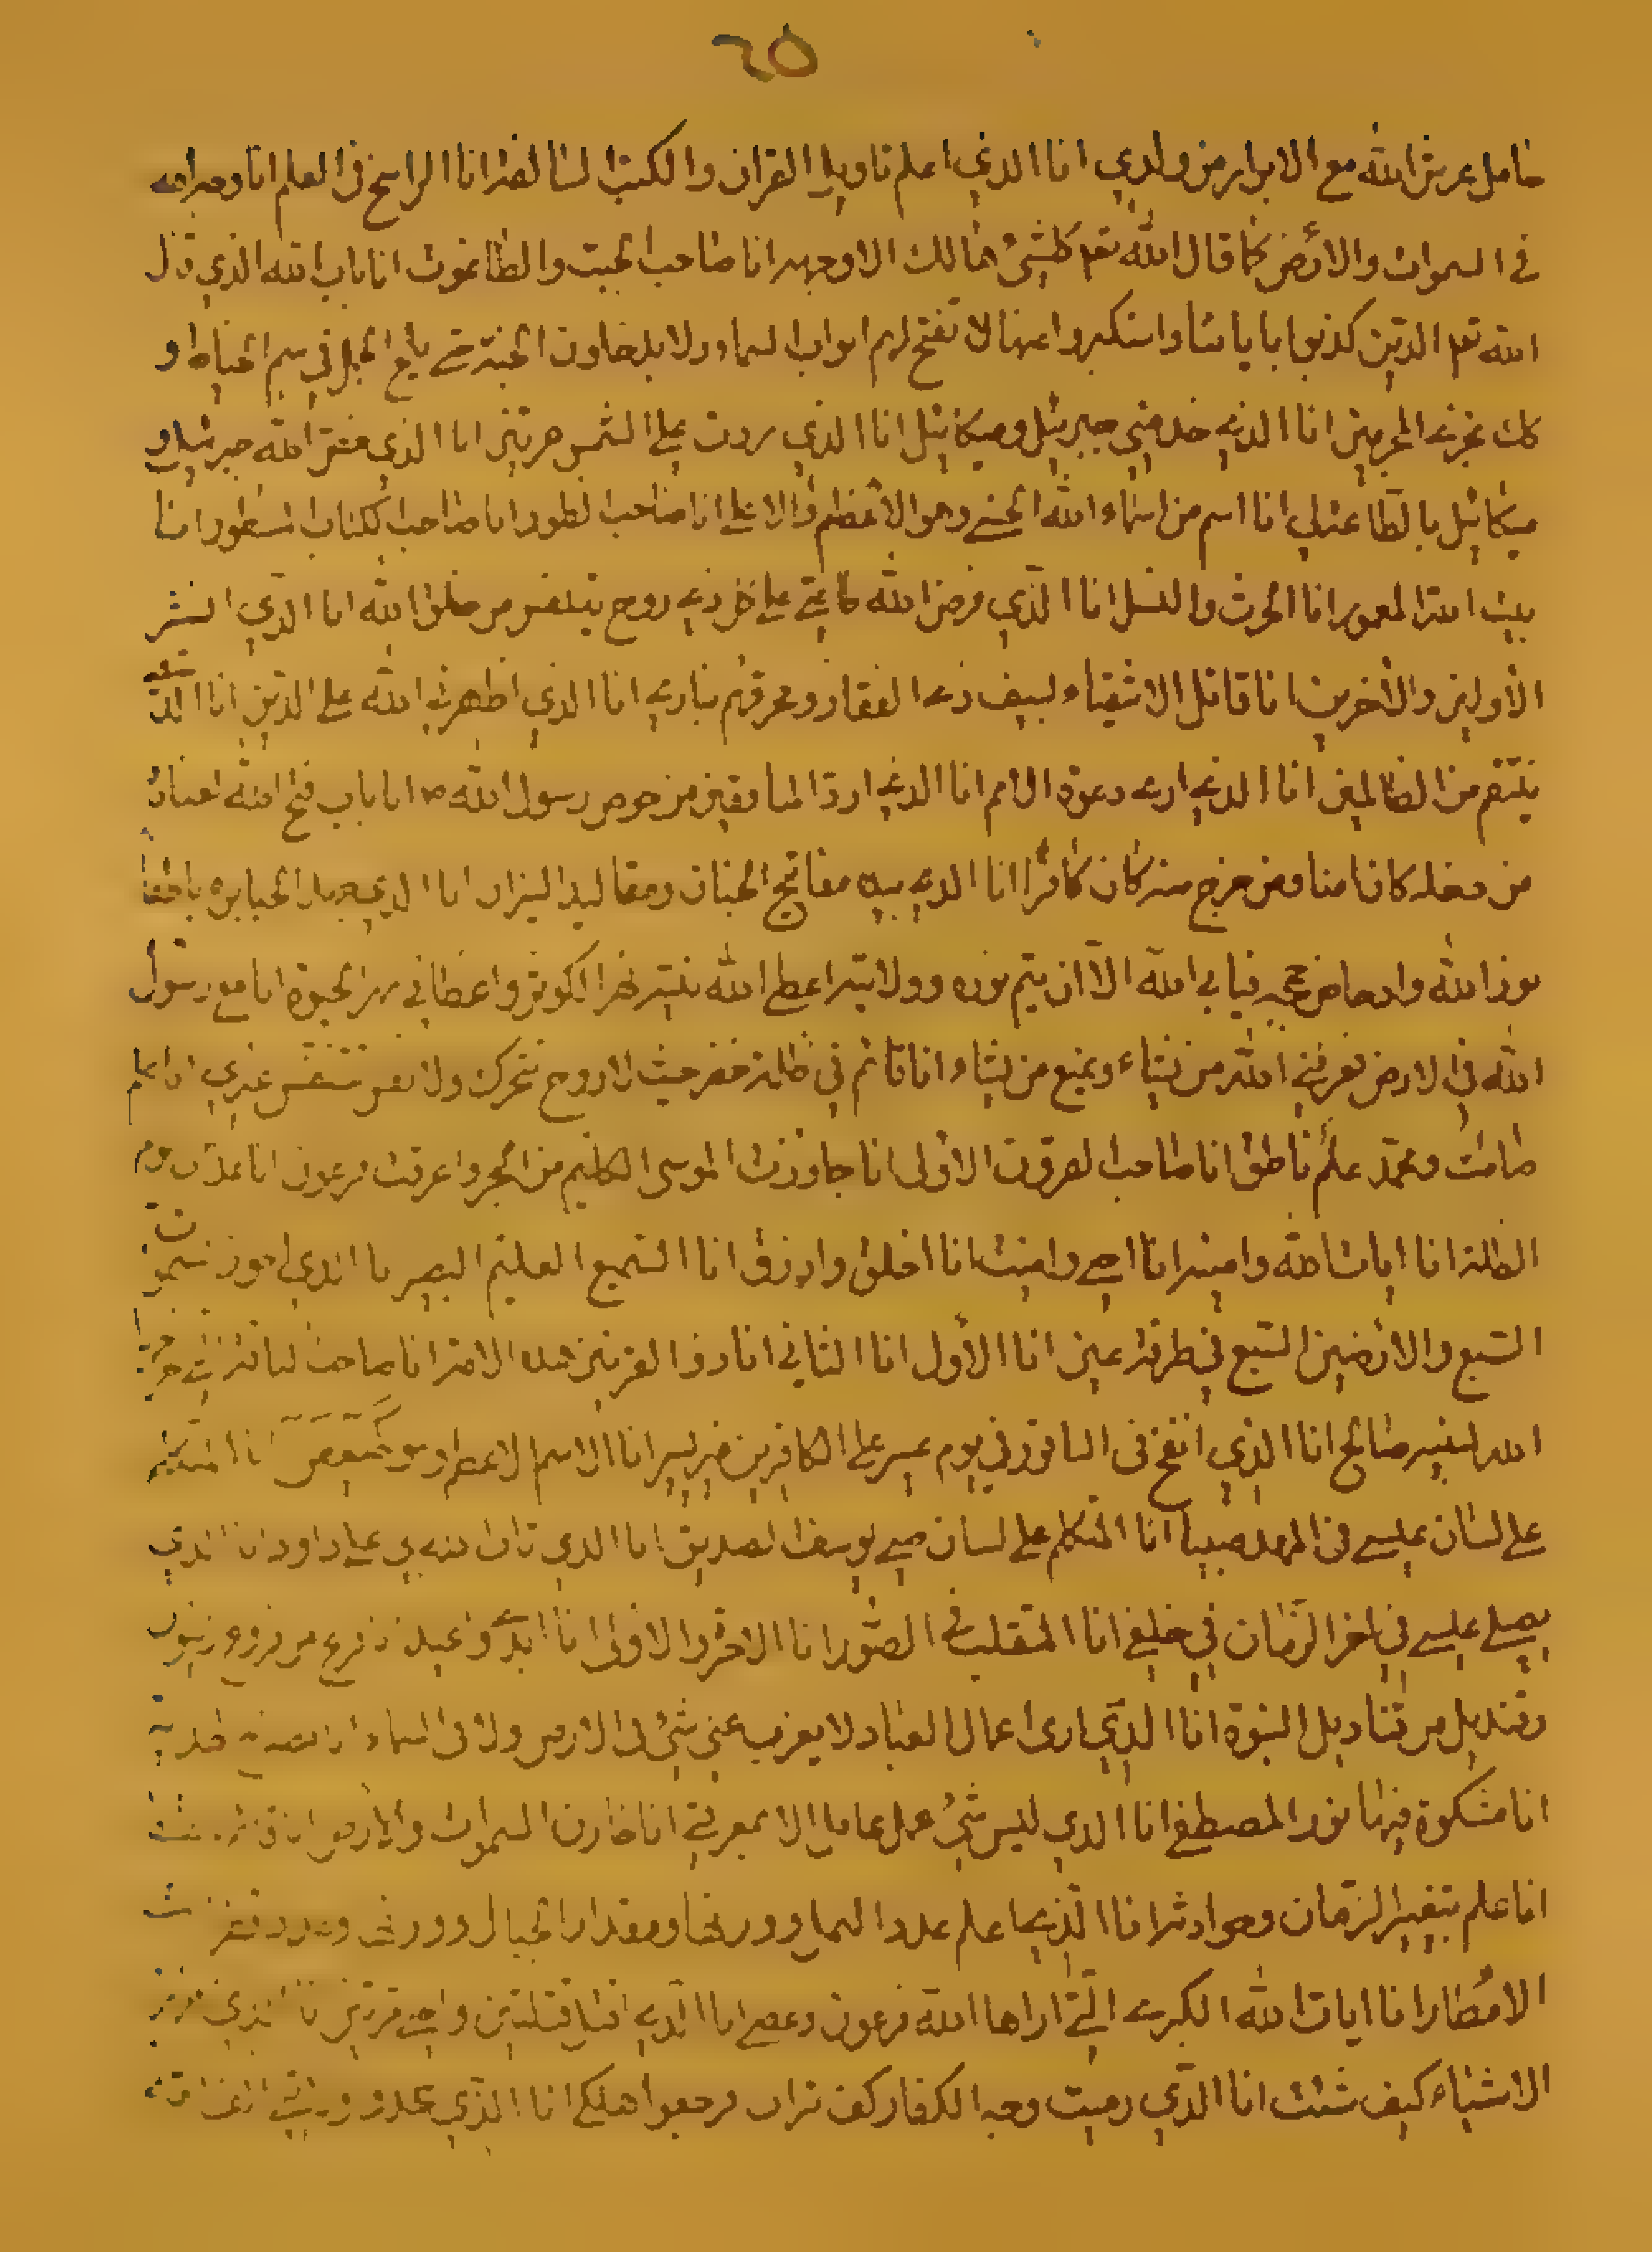 ٦٥
حامل عرش الله مع الابرار من ولدي انا الذي اعلم تاويل القران والكتب السالفة انا الراسخ في العلم انا وجه الله
في السموات والارض كما قال الله تعم كل شئ هالك الا وجهه انا صاحب الجبت والطاغوت انا باب الله الذي قال
الله تعم الذين كذبوا باياتنا واستكبروا عنها لا تفتح لهم ابواب السماء ولا يدخلون الجنة حتى يلج الجمل في سم الخياط و
كك نجزي المجرمين انا الذي خدمني جبرئيل وميكائيل انا الذي ردت علي الشمس مرتين انا الذي الله جبرئيل و
ميكائيل بالطاعة لي انا اسم من اسماء الله الحسنى وهو الاعظم والاعلى انا صاحب الطور انا صاحب الكتاب المسطور انا
بيت الله المعمور انا الحرث والنسل انا الذي فرض الله طاعتي على كل ذي روح يتنفس من خلق الله انا الذي انشر
الاولين والاخرين انا قاتل الاشقياء بسيف ذي الفقار ومحرقهم بناري انا الذي اظهرني الله على الدين انا
ينتقم من الظالمين انا الذي ارى دعوة الامم انا الذي ارد المنافقين من حوض رسول الله ص انا باب فتح الله لعباده
من دخله كان امنا ومن خرج منه كان كافرا انا الذي بيده مفاتيح الجنان ومقاليد النيران انا الذي الجبابرة باطفاء
نور الله وادحاض حجته فيابى الله الا ان يتم نوره وولايته اعطى الله نبيه نهر الكوثر واعطاني نهر الحيوة انا مع رسول
الله في الارض فعرفني الله من يشاء ويمنع من يشاء انا قائم في ظلة خضر حيث لا روح تتحرك ولا نفس تتنفس غيري انا علم
صامت ومحمد علم ناطق انا صاحب القرون الاولى انا جاوزت الموسى الكليم من البحر واغرقت فرعون انا عذاب يوم
الظلة انا ايات الله وامينه انا احيي واميت انا اخلق وارزق انا السميع العليم البصير انا الذي اجوز سموات
السبع والارضين السبع في طرفة عين انا الاول انا الثاني انا ذو القرنين هذه الامة انا صاحب الناقة التي
الله لنبيه صالح انا الذي انفخ في الناقور في يوم عسير على الكافرين غير يسير انا الاسم الاعظم وهو كهيعص انا المتكلم
على لسان عيسى في المهد صبيا انا المتكلم على لسان صبي يوسف الصديق انا الذي تاب الله بي على داود انا الذي
يصلي عيسى في اخر الزمان في خلفي انا المتقلب في الصور انا الاخرة والاولى انا ابدي واعيد انا فرع من فروع زيتون
وقنديل من قناديل النبوة انا الذي ارى اعمال العباد لا يعزب عني شئ في الارض ولا في السماء
انا مشكوة فيها نور المصطفى انا الذي ليس شئ عمل عامل الا بمعرفتي انا خازن السموات والارض انا
انا علم بتغيير الزمان وحوادثه انا الذي اعلم عدد النمل ووزنها ومقدار الجبال ووزنها وعدد قطرات
الامطار انا ايات الله الكبرى التي اراها الله فرعون وعصى انا الذي اقتل قتلتين واحيي مرتين انا الذي
الاشياء كيف شئت انا الذي رميت وجه الكفار كف تراب فرجعوا هلكى انا الذي